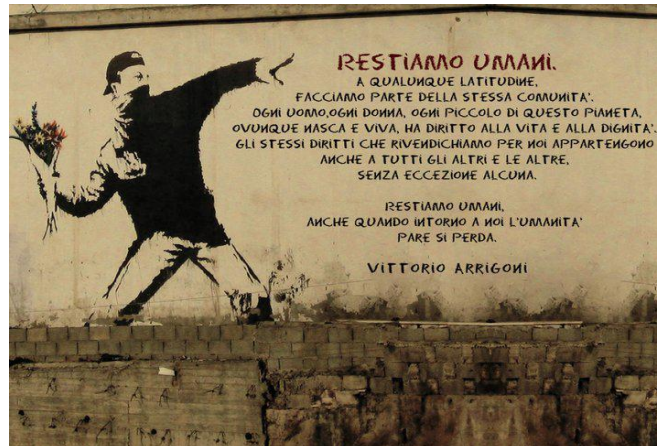 RESTIAMO UMANI.
A QUALUNQUE LATITUDINE,
FACCIAMO PARTE DELLA STESSA COMUNITA'.
OGNI UOMO,OGNI DONNA, OGNI PICCOLO DI QUESTO PIANETA,
OVUNQUE NASCA E VIVA, HA DIRITTO ALLA VITA E ALLA DIGNITA'.
GLI STESSI DIRITTI CHE RIVENDICHIAMO PER NOI APPARTENGONO
ANCHE A TUTTI GLI ALTRI E LE ALTRE,
SENZA ECCEZIONE ALCUNA.
RESTIAMO UMANI,
ANCHE QUANDO INTORNO A NOI L'UMANITA'
PARE SI PERDA.
VITTORIO ARRIGONI